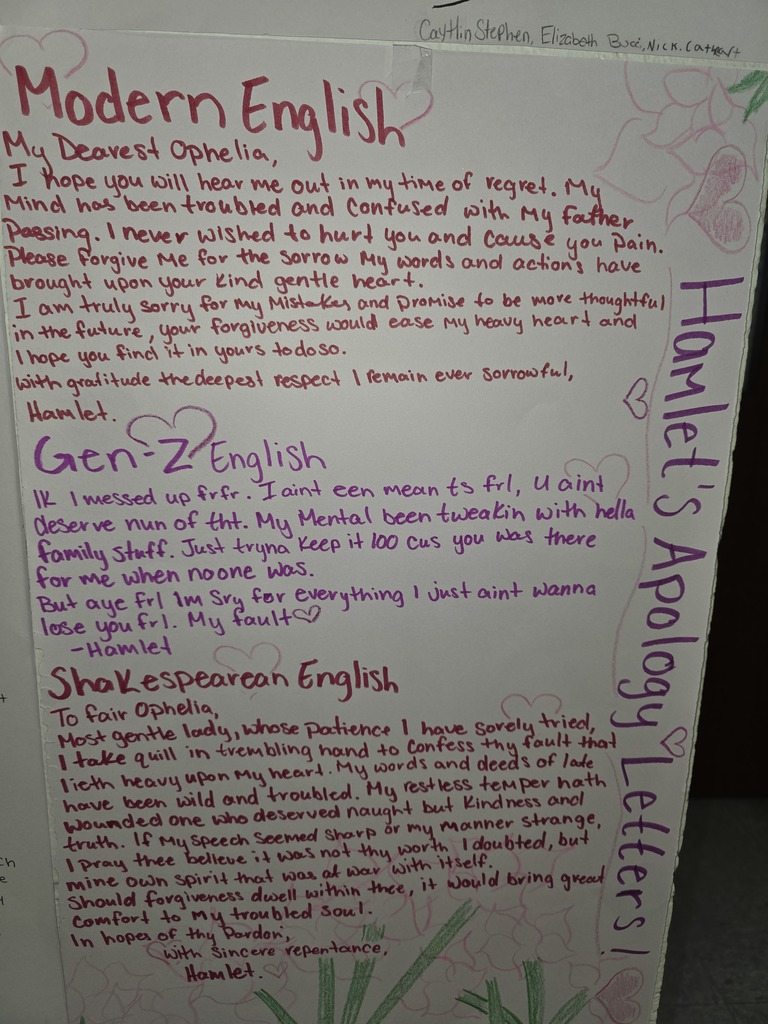 Caytlin Stephen, Elizabeth Nick.
Modern English
My Dearest Ophelia,
I hope you will hear me out in my time of regret. My
Mind has been troubled and confused with My father
Passing. I never wished to hurt you and cause you pain.
Please forgive me for the sorrow My words and actions have
brought upon your kind gentle heart.
I am truly sorry for my Mistakes and promise to be more thoughtful
in the future, your forgiveness would ease My heavy heart and
I hope you find it in yours to do so.
with gratitude the deepest respect I remain ever sorrowful,
Hamlet.
Gen-Z English
IK I messed up frfr. I aint een mean ts frl, u aint
deserve nun of tht. My Mental been tweakin with hella
family stuff. Just tryna keep it 100 cus you was there
for me when no one was.
But aye frl Im Sry for everything I just aint wanna
lose you frl. My fault♡
-Hamlet
Shakespearean English
To fair Ophelia,
Most gentle lady, whose patience I have sorely tried,
I take quill in trembling hand to confess thy fault that
lieth heavy upon My heart. My words and deeds of late
have been wild and troubled. My restless temper hath
wounded one who deserved naught but kindness and
truth. If My speech seemed sharp or my manner strange,
I pray thee believe it was not thy worth I doubted, but
mine own spirit that was at war with itself.
Should forgiveness dwell within thee, it would bring great
comfort to My troubled soul.
In hopes of thy Pardon,
with sincere repentance,
Hamlet.
Hamlet's Apology Letters!